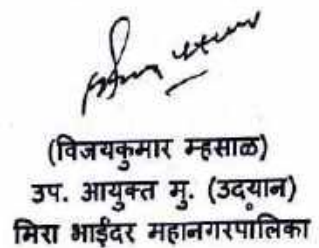 (विजयकुमार म्हसाळ)
उप. आयुक्त मु. (उद्यान)
मिरा भाईंदर महानगरपालिका